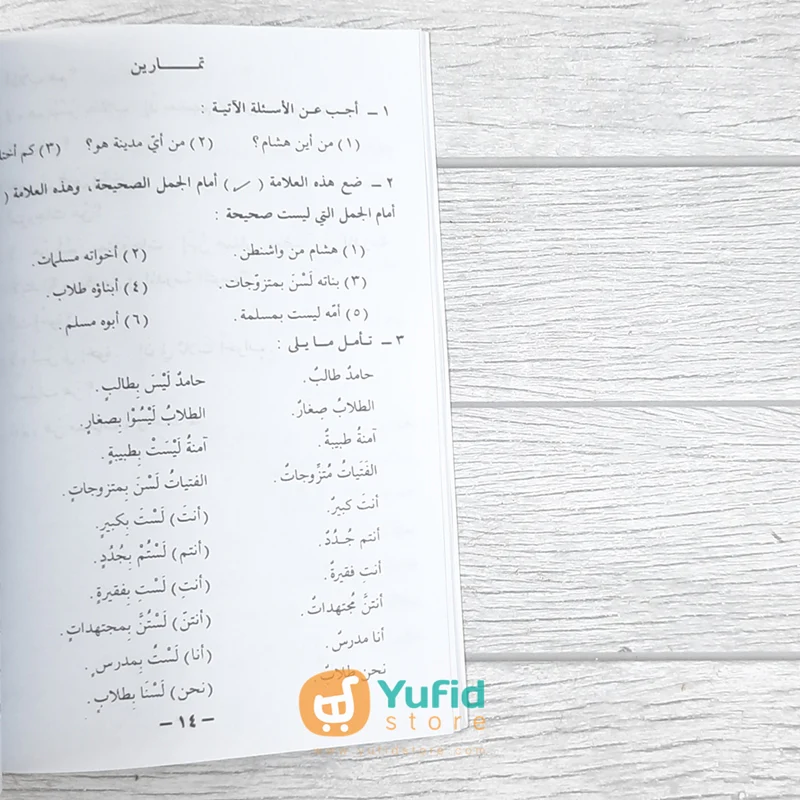 تمـــارين
١ ــ أجب عن الأسئلة الآتية :
(١) من أين هشام؟ (٢) من أيّ مدينة هو؟ (٣) كم
٢ ــ ضع هذه العلامة ( ✓ ) أمام الجمل الصحيحة، وهذه العلامة (
أمام الجمل التي ليست صحيحة :
(١) هشام من واشنطن. (٢) أخواته مسلمات.
(٣) بناته لَسْنَ بمتزوّجات. (٤) أبناؤه طلاب.
(٥) أمّه ليست بمسلمة. (٦) أبوه مسلم.
٣ ــ تـأمـل مـا يـلى :
حامدٌ طالبٌ. حامدٌ لَيْسَ بِطالبٍ.
الطلابُ صغارٌ. الطلابُ لَيْسُوْا بِصغارٍ.
آمنةُ طبيبةٌ. آمنةُ لَيْسَتْ بِطبيبةٍ.
الفَتَياتُ مُتزَوِّجاتٌ. الفتياتُ لَسْنَ بِمتزوجاتٍ.
أنتَ كبيرٌ. (أنتَ) لَسْتَ بِكبيرٍ.
أنتم جُـدُدٌ. (أنتم) لَسْتُمْ بِجُدُدٍ.
أنتِ فقيرةٌ. (أنتِ) لَسْتِ بِفقيرةٍ.
أنتنَّ مُجتهداتٌ. (أنتنّ) لَسْتُنَّ بِمجتهداتٍ.
أنا مدرسٌ. (أنا) لَسْتُ بِمدرسٍ.
نحن طلابٌ. (نحن) لَسْنَا بِطلابٍ.
ــ ١٤ ــ
Yufid
store